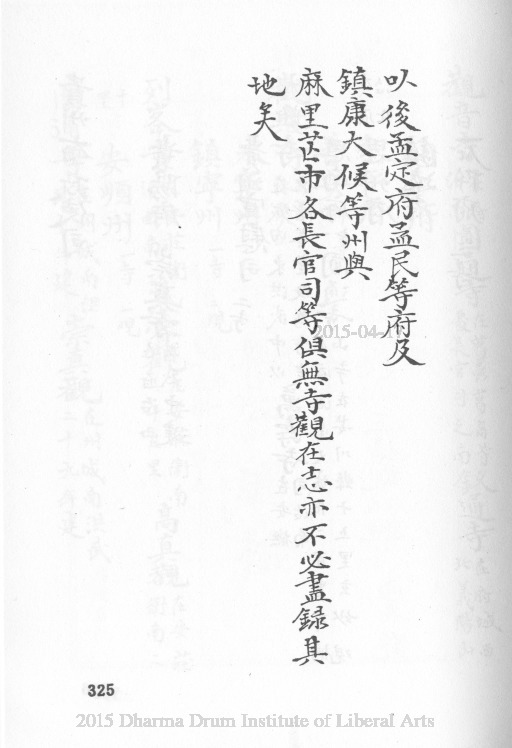 以後孟定府孟民等府及
鎮康大候等州與
麻里茫市各長官司等俱無寺觀在志亦不必盡錄其
地矣
2015-04-1
325
2015 Dharma Drum Institute of Liberal Arts